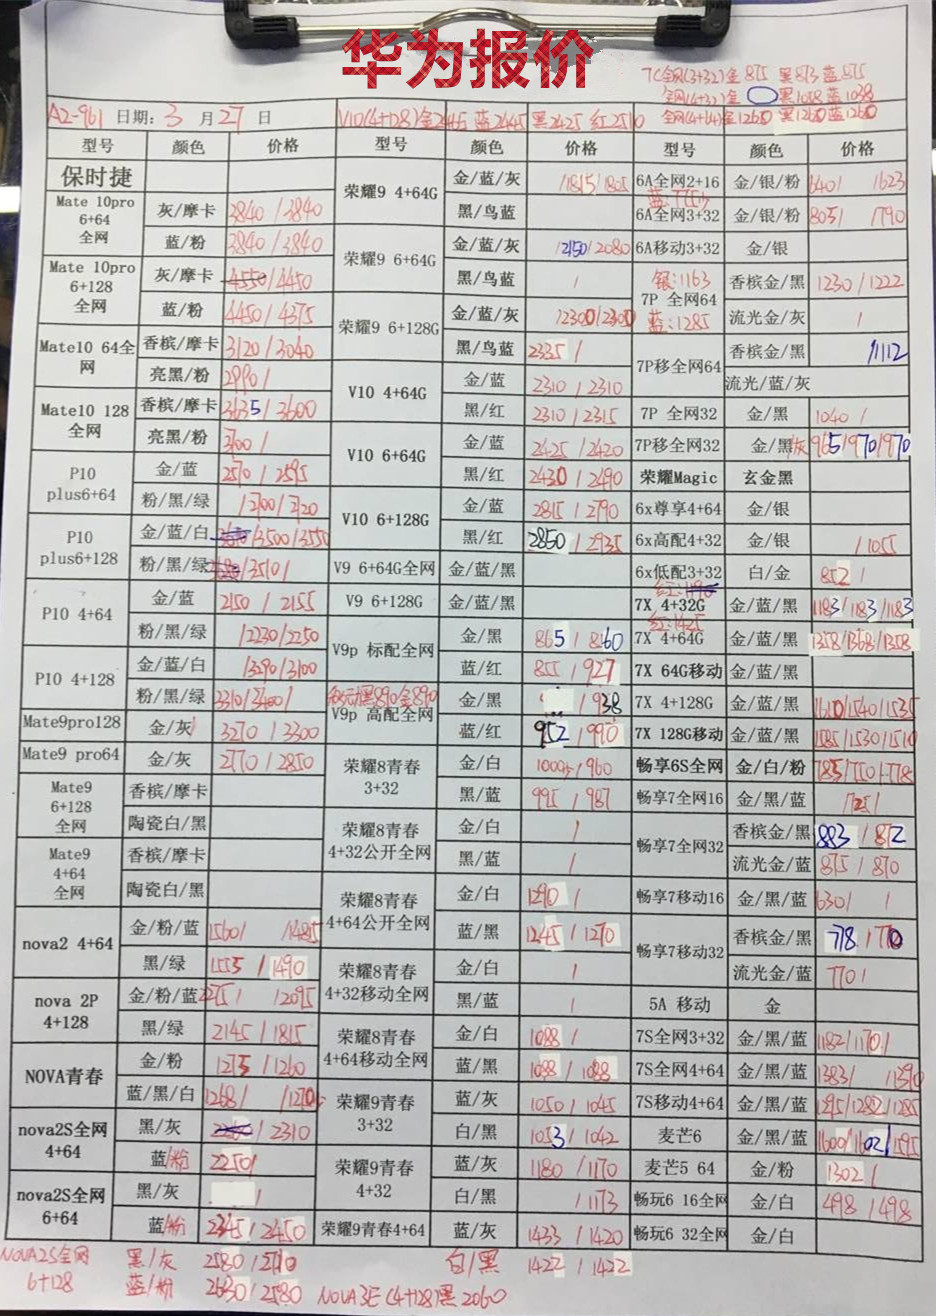 华为报价
7C全网(3+32)金 875 黑 873 蓝 875
全网(4+32)金 黑1038 蓝1038
A2-961 日期: 3 月 27 日 V10(4+128)金2465 蓝2445 黑2425 红2510 全网(4+64)金1260 黑1260 蓝1260
型号 颜色 价格 型号 颜色 价格 型号 颜色 价格
保时捷
Mate 10pro 6+64 全网 灰/摩卡 3840 / 3840
蓝/粉 3840 / 3840
Mate 10pro 6+128 全网 灰/摩卡 4550 / 4450
蓝/粉 4450 / 4375
Mate10 64全网 香槟/摩卡 3120 / 3040
亮黑/粉 2990 /
Mate10 128 全网 香槟/摩卡 3635 / 3600
亮黑/粉
P10 plus6+64 金/蓝 2570 / 2595
粉/黑/绿 / 2700 / 2720
P10 plus6+128 金/蓝/白 / 3500 / 3550
粉/黑/绿 / 3510 /
P10 4+64 金/蓝 2150 / 2155
粉/黑/绿 / 2230 / 2250
P10 4+128 金/蓝/白 / 3290 / 3100
粉/黑/绿 3310 / 3400 /
Mate9pro128 金/灰 3270 / 3300
Mate9 pro64 金/灰 2770 / 2850
Mate9 6+128 全网 香槟/摩卡
陶瓷白/黑
Mate9 4+64 全网 香槟/摩卡
陶瓷白/黑
nova2 4+64 金/粉/蓝 1560 / 1485
黑/绿 1555 / 1490
nova 2P 4+128 金/粉/蓝 2275 / 2095
黑/绿 2145 / 1815
NOVA青春 金/粉 1275 / 1260
蓝/黑/白 1268 / / 1270
nova2S全网 4+64 黑/灰 / 2310
蓝/粉 2250 /
nova2S全网 6+64 黑/灰 /
蓝/粉 2345 / 2450
荣耀9 4+64G 金/蓝/灰 / 1815 / 1805
黑/鸟蓝
荣耀9 6+64G 金/蓝/灰 / 2150 / 2080
黑/鸟蓝 /
荣耀9 6+128G 金/蓝/灰 / 2300 / 2300
黑/鸟蓝 2335 /
V10 4+64G 金/蓝 2310 / 2310
黑/红 2310 / 2315
V10 6+64G 金/蓝 2425 / 2420
黑/红 2430 / 2490
V10 6+128G 金/蓝 2815 / 2790
黑/红 2850 / 2935
V9 6+64G全网 金/蓝/黑
V9 6+128G 金/蓝/黑
V9p 标配全网 金/黑 865 / 860
蓝/红 855 / 927
移动标黑890金890
V9p 高配全网 金/黑 / 938
蓝/红 952 / 990
荣耀8青春 3+32 金/白 1000 / 960
黑/蓝 995 / 987
荣耀8青春 4+32公开全网 金/白 /
黑/蓝 /
荣耀8青春 4+64公开全网 金/白 1290 /
蓝/黑 1245 / 1270
荣耀8青春 4+32移动全网 金/白 /
黑/蓝 /
荣耀8青春 4+64移动全网 金/白 1088 /
蓝/黑 1088 / 1088
荣耀9青春 3+32 蓝/灰 1050 / 1045
白/黑 1053 / 1042
荣耀9青春 4+32 蓝/灰 1180 / 1170
白/黑 / 1173
荣耀9青春4+64 蓝/灰 1433 / 1420
6A全网2+16 金/银/粉 640 / 623
6A全网3+32 金/银/粉 805 / 790
6A移动3+32 金/银
银:1163
7P 全网64 香槟金/黑 1230 / 1222
蓝:1285 流光金/灰 /
7P移全网64 香槟金/黑 / 1112
流光/蓝/灰
7P 全网32 金/黑 1040 /
7P移全网32 金/黑灰 965 / 970 / 970
荣耀Magic 玄金黑
6x尊享4+64 金/银
6x高配4+32 金/银 / 1055
6x低配3+32 白/金 852 /
红:1190
7X 4+32G 金/蓝/黑 1183 / 1183 / 1183
红:1425
7X 4+64G 金/蓝/黑 1358 / 1368 / 1358
7X 64G移动 金/蓝/黑
7X 4+128G 金/蓝/黑 1610 / 1540 / 1535
7X 128G移动 金/蓝/黑 1585 / 1530 / 1510
畅享6S全网 金/白/粉 785 / 750 / 778
畅享7全网16 金/黑/蓝 / 725 /
畅享7全网32 香槟金/黑 883 / 872
流光金/蓝 875 / 870
畅享7移动16 金/黑/蓝 630 / /
畅享7移动32 香槟金/黑 778 / 770
流光金/蓝 770 /
5A 移动 金
7S全网3+32 金/黑/蓝 1182 / 1170 /
7S全网4+64 金/黑/蓝 1383 / / 1390
7S移动4+64 金/黑/蓝 1295 / 1282 / 1285
麦芒6 金/黑/蓝 1600 / 1602 / 1595
麦芒5 64 金/粉 1302 /
畅玩6 16全网 金/白 498 / 498
畅玩6 32全网 金/白
NOVA2S全网 6+128 黑/灰 2580 / 2510 白/黑 1422 / 1422
蓝/粉 2630 / 2580 NOVA3E (4+128)黑2060